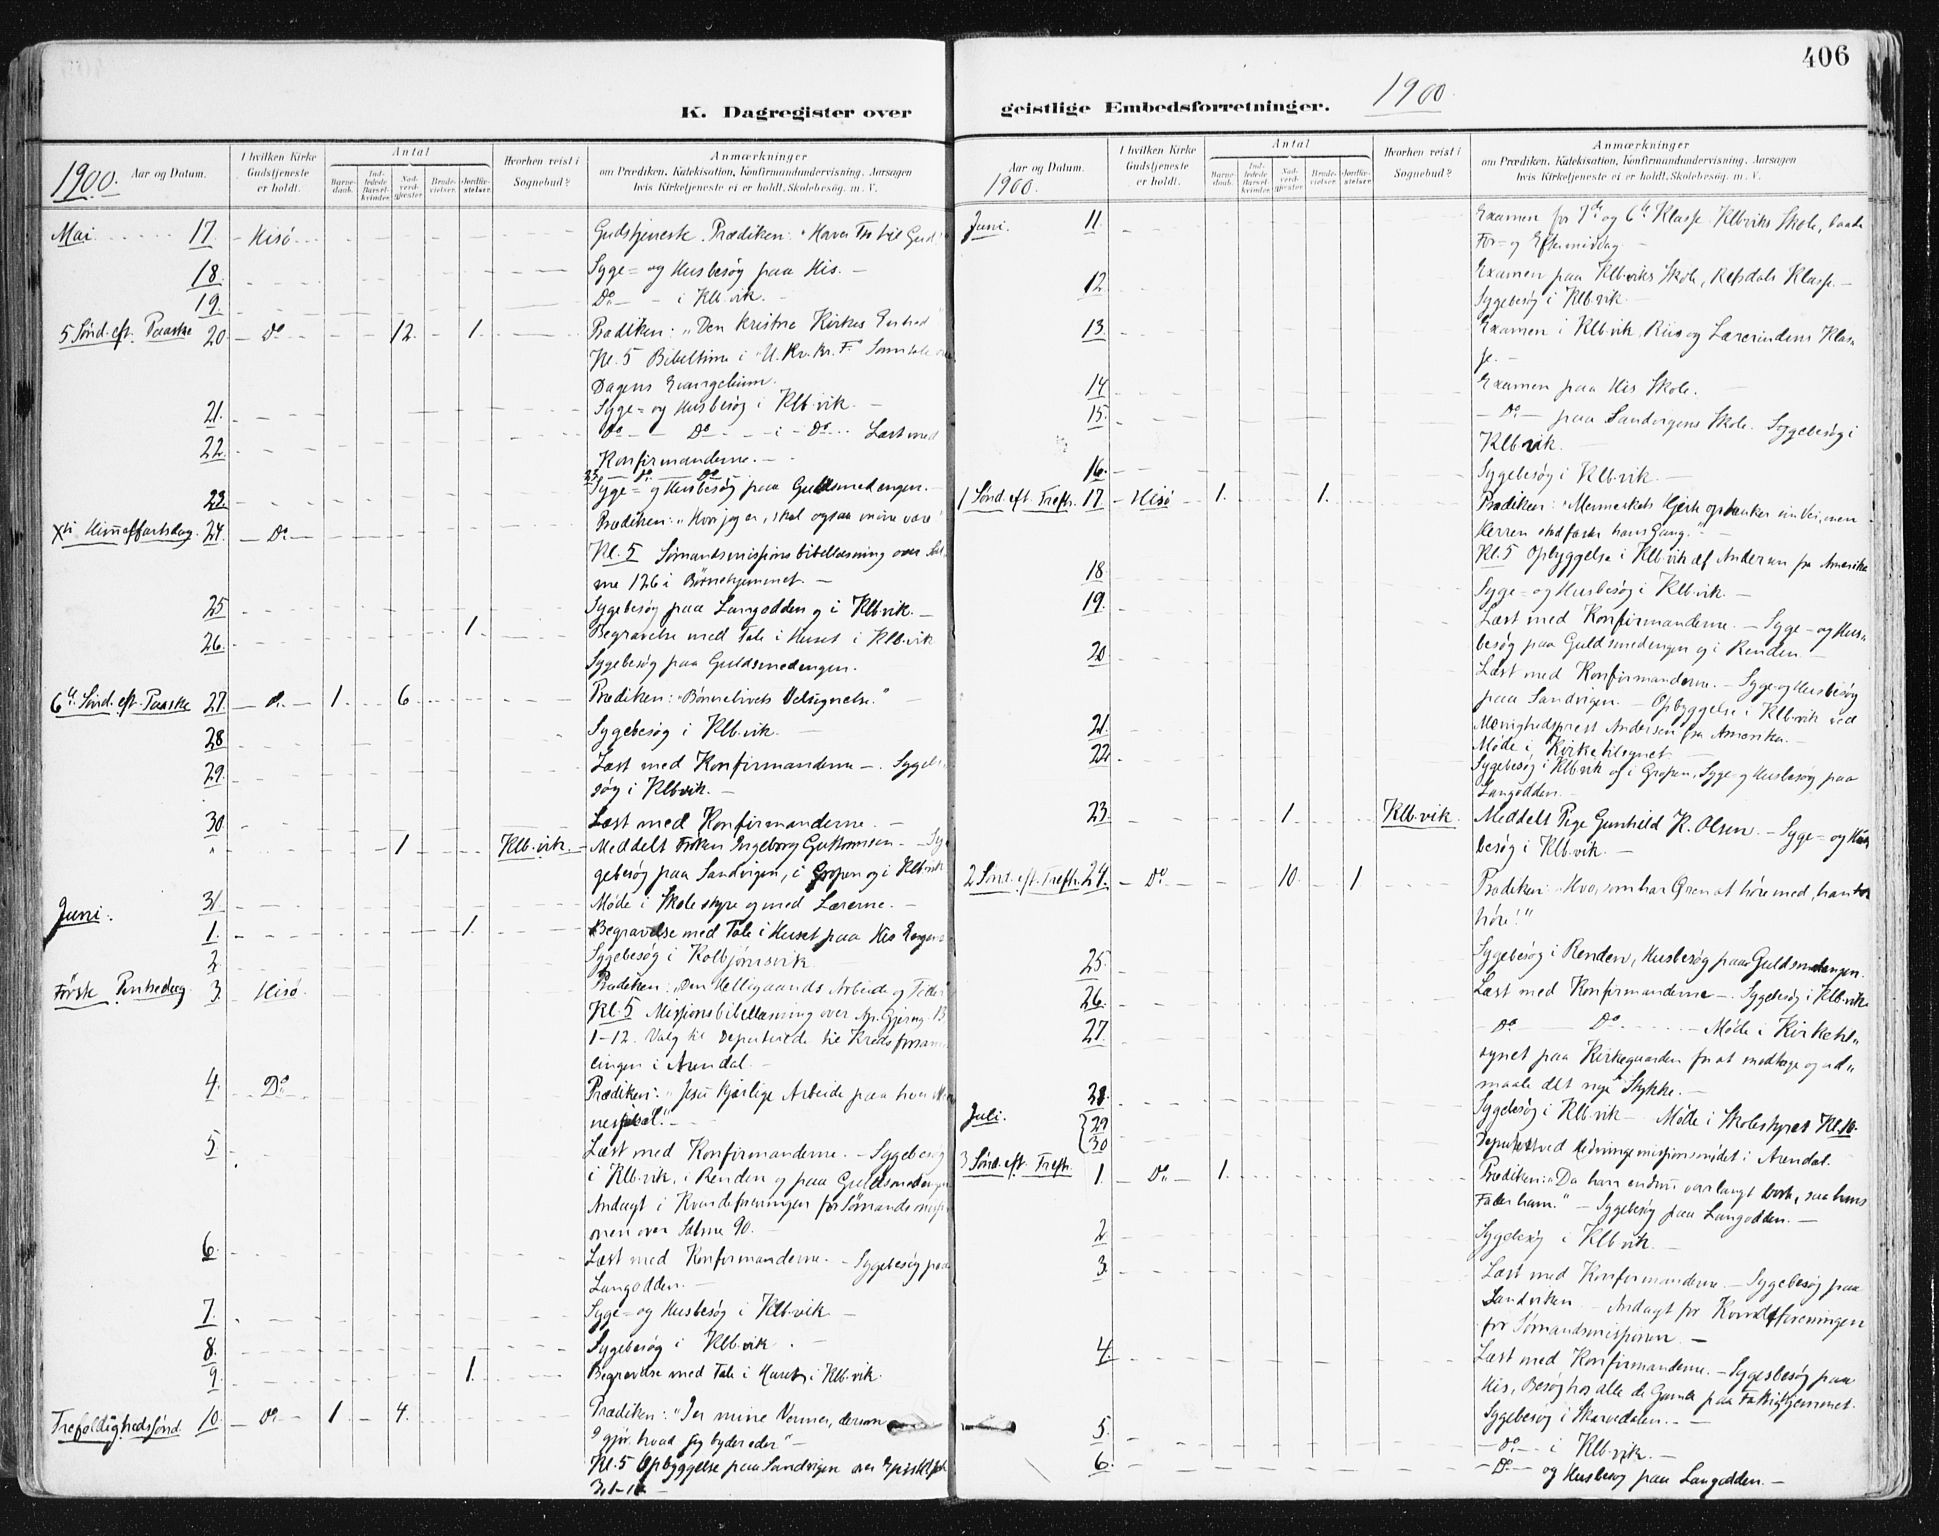 406
K. Dagregister over geistlige Embedsforretninger. 1900
1900. Aar og Datum.
I hvilken Kirke Gudstjeneste er holdt.
Antal
Barnedaab.
Indledede Barselkvinder.
Nadverdgjester.
Brudevielser.
Jordfæstelser.
Hvorhen reist i Sognebud?
Anmærkninger
om Prædiken, Katekisation, Konfirmandundervisning, Aarsagen
hvis Kirketjeneste ei er holdt, Skolebesøg. m. V.
Mai 17. Hisö Gudstjeneste. Prædiken: "Haver Tro til Gud"
18. Syge= og Husbesøg paa His. —
19. Do — i Klb.vik. —
5 Sønd. eft. Paaske 20. Do 12. 1. Prædiken: "Den kristne Kirkes
Kl. 5 Bibeltime i
Dagens Evangelium.
21. Syge= og Husbesøg i Klb.vik. —
22. Do — Do — i Do. Læst med
Konfirmanderne. —
23. Syge= og Husbesøg paa Guldsmedengen. —
Kr. Himmelfartsdag. 24. Do Prædiken: "Hvor jeg er, skal ogsaa min være"
Kl. 5 Sømandsmissionsbibellæsning over Sal-
me 126 i Børnehjemmet. —
25 Sygebesøg paa Langodden og i Klb.vik. —
26. 1. Begravelse med Tale i Huset i Klb.vik
Sygebesøg paa Guldsmedengen.
6te Sønd. eft. Paaske 27. Do 1. 6. Prædiken: "Bønnelivets Velsignelse."
28 Sygebesøg i Klb.vik. —
29. Læst med Konfirmanderne —. Sygebe-
søg i Klb.vik. —
30. Læst med Konfirmanderne. —
" 1. Klb.vik. Meddelt Frøken Ingeborg Guttormsen — Sy-
gebesøg paa Sandvigen, i Gropen og i Klb.vik
31. Møde i Skolestyre og med Lærerne. —
Juni. 1. 1. Begravelse med Tale i Huset paa His
2. Sygebesøg i Kolbjørnsvik.
Første Pintsedag. 3. Hisö. Prædiken: "Den Helligaands Arbeide og
Kl. 5 Missionsbibellæsning over Ap. Gjerng. 13
1–12. Valg til Deputerede til Kredsforsam-
lingen i Arendal. —
4. Do Prædiken: "Jesu kjærlige Arbeide paa hver
5. Læst med Konfirmanderne. — Sygebesøg
i Klb.vik, i Renden og paa Guldsmedengen
Andagt i Kvindeforeningen for Sømandsmissi-
onen over Salme 90. —
6. Læst med Konfirmanderne. — Sygebesøg paa
Langodden. —
7. Syge= og Husbesøg i Klb.vik —
8. Sygebesøg i Klb.vik. —
9. 1. Begravelse med Tale i Huset, i Klb.vik.
Trefoldighedssønd. 10. Do 1. 4. Prædiken: "I er mine Venner, dersom
I gjør hvad jeg byder eder" —
Kl. 5 Opbyggelse paa Sandvigen over
Aar og Datum. 1900.
I hvilken Kirke Gudstjeneste er holdt.
Antal
Barnedaab.
Indledede Barselkvinder.
Nadverdgjester.
Brudevielser.
Jordfæstelser.
Hvorhen reist i Sognebud?
Anmærkninger
om Prædiken, Katekisation, Konfirmandundervisning. Aarsagen
hvis Kirketjeneste ei er holdt, Skolebesøg. m. V.
Juni. 11. Examen for 7de og 6te Klasse Klbviks Skole, baade
For= og Eftermiddag. —
12. Examen paa Klb.viks Skole, Refsdals Klasse. —
Sygebesøg i Klb.vik. —
13. Examen i Klb.vik, Riis og Lærerindens Klas-
se. —
14 Examen paa His Skole.
15. — Do — paa Sandvigens Skole. Sygebesøg i
Klb.vik.
16. Sygebesøg i Klb.vik. —
1 Sønd. eft. Trefh. 17. Hisö 1. 1. Prædiken: "Menneskets Hjerte optænker sin Vei, men
Herren stadfæster hans Gang." —
Kl. 5 Opbyggelse i Klb.vik af Andersen fra Amerika
18. Syge= og Husbesøg i Klb.vik. —
19. Læst med Konfirmanderne. — Syge= og Hus-
besøg paa Guldsmedengen og i Renden. —
20. Læst med Konfirmanderne. — Syge= og Husbesøg
paa Sandvigen. — Opbyggelse i Klb.vik ved
Menighedsprest Andersen fra Amerika. —
21. Møde i Kirketilsynet —
22. Sygebesøg i Klb.vik og i Gropen, Syge= og Husbesøg paa
Langodden. —
23. 1. Klb.vik. Meddelt Pige Gunhild K. Olsen. — Syge= og Hus-
besøg i Klb.vik. —
2 Sønd. eft. Trefh. 24. Do 10. 1. Prædiken: "Hvo som har Øren at høre med, han
høre!"
25. Sygebesøg i Renden, Husbesøg paa Guldsmedengen.
26. Læst med Konfirmanderne —. Sygebesøg i Klb.vik
27. — Do — Do — Møde i Kirketil-
synet paa Kirkegaarden for at modtage og ud-
maale det nye Stykke. —
28. Sygebesøg i Klb.vik — Møde i Skolestyret
Juli. 29 30 Deputeret ved Redningsmissionsmødet i Arendal.
3 Sønd. eft. Trefh. 1. Do 1. Prædiken: "Da han endnu var langt borte, saa hans
Fader ham." — Sygebesøg paa Langodden. —
2. Sygebesøg i Klb.vik. —
3. Læst med Konfirmanderne — Sygebesøg paa
Sandviken — Andagt for Kvindeforeningen
for Sømandsmissionen —
4. Læst med Konfirmanderne. — Sygebesøg paa
His, Besøg hos alle de Gamle paa Fattighjemmet.
Sygebesøg i Skarvedalen. —
5. — Do — i Klb.vik. —
6. — Do — og Husbesøg paa Langodden. —